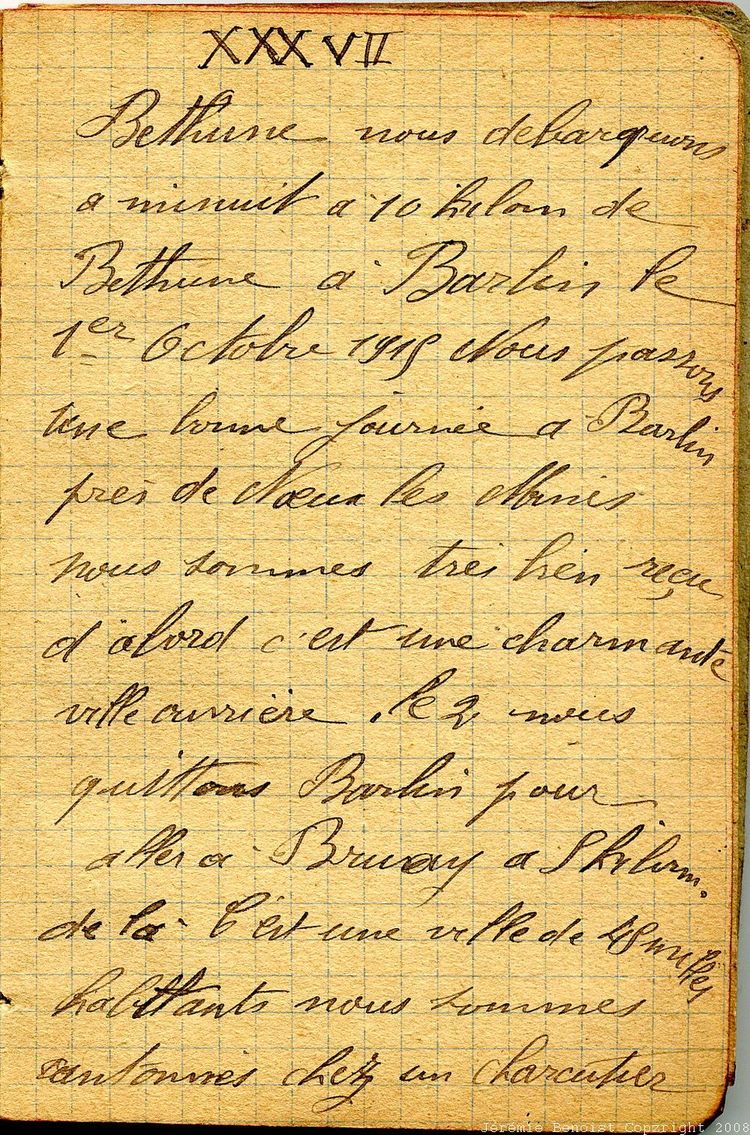 XXXVII
Bethune nous debarquons
a minuit à 10 kilom de
Bethune à Barlin le
1er Octobre 1915 Nous passons
une bonne journée a Barlin
près de Nœux les Mines
nous sommes très bien reçu
d'abord c'est une charmante
ville ouvrière. le 2 nous
quittons Barlin pour
aller a Bruay a 5 kilom.
de là C'est une ville de milles
habittants nous sommes
cantonnés chez un charcutier
Jérémie Benoist Copyright 2008